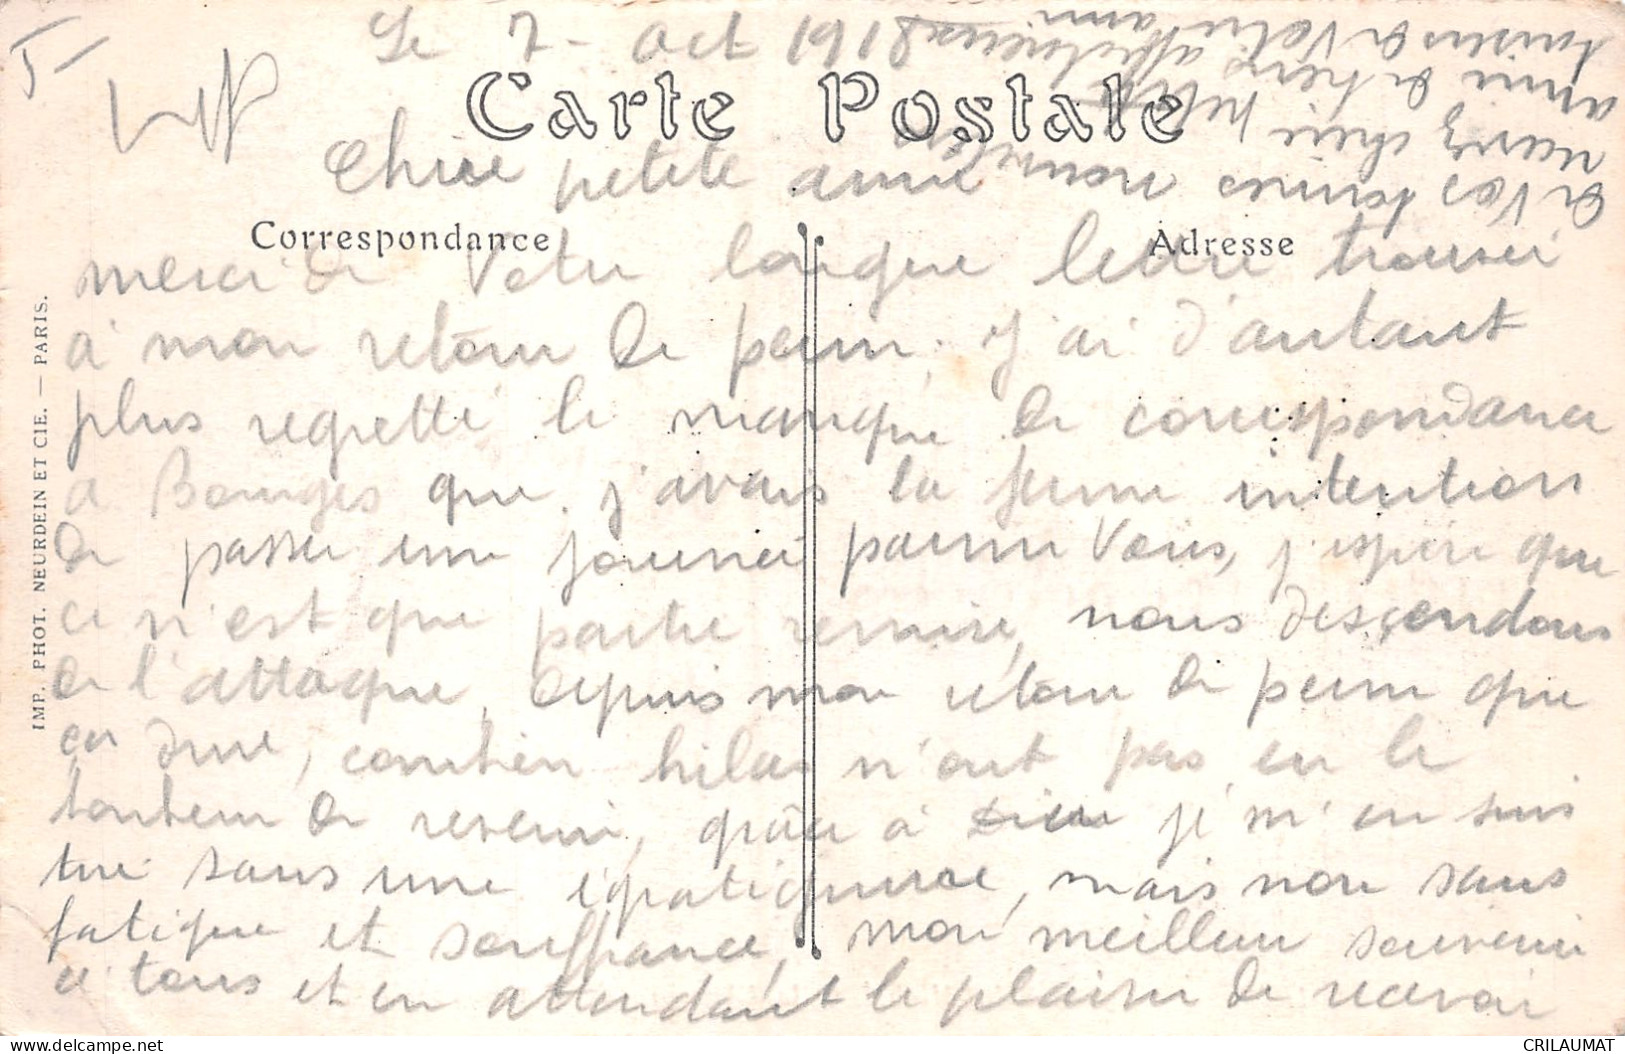 Le 7 - Oct 1918
Carte Postale
Chère petite amie
Correspondance
Adresse
merci de Votre longue lettre trouvée
à mon retour de perm, j'ai d'autant
plus regretté le manque de correspondance
a Bourges que j'avais la ferme intention
de passer une journée parmi Vous, j'espère que
ce n'est que partie remise, nous descendons
de l'attaque, depuis mon retour de perm que
ça dure, combien hélas n'ont pas eu le
bonheur de revenir, grâce à Dieu je m'en suis
tiré sans une égratignure, mais non sans
fatigue et souffrance, mon meilleur souvenir
à tous et en attendant le plaisir de recevoir
de Vos bonnes nouvelles
recevez chère petite
amie de biens affectueux
baisers de Votre ami
IMP. PHOT. NEURDEIN ET CIE. — PARIS.
CRILAUMAT